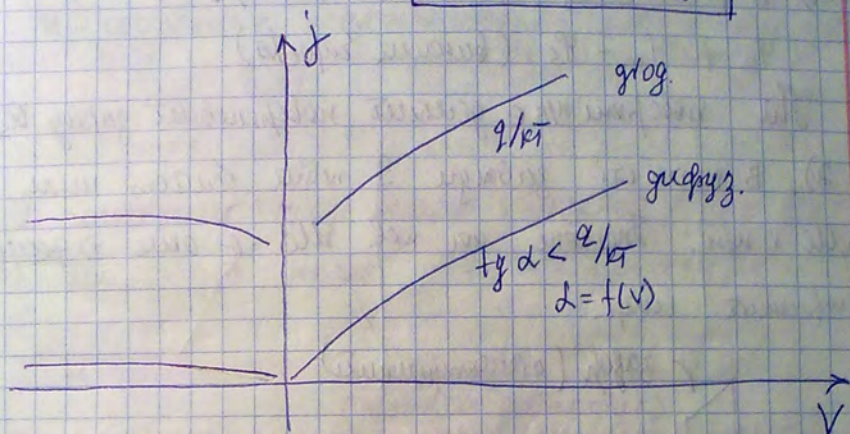 j
діод.
q/kT
дифуз.
tg α < q/kT
α = f(V)
V